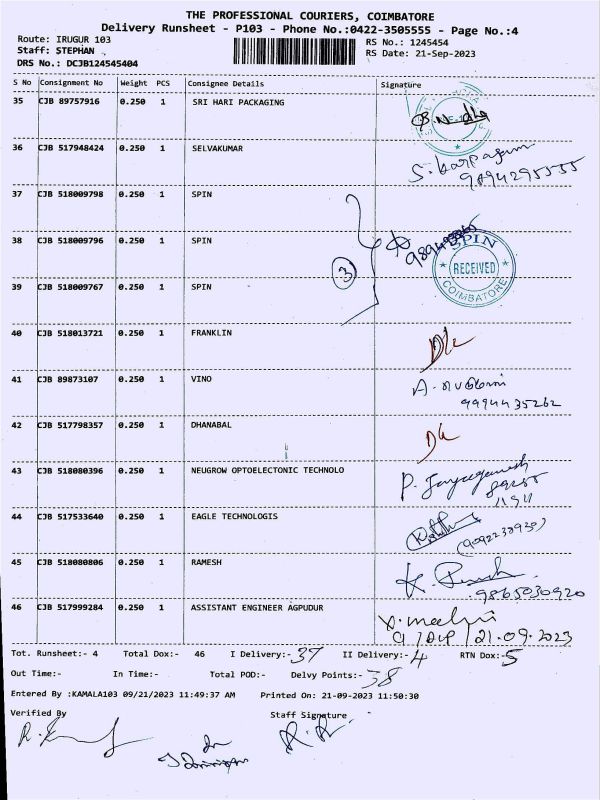 THE PROFESSIONAL COURIERS, COIMBATORE
Delivery Runsheet - P103 - Phone No.:0422-3505555 - Page No.:4
Route: IRUGUR 103
RS No.: 1245454
Staff: STEPHAN
RS Date: 21-Sep-2023
DRS No.: DCJB124545404
S No Consignment No Weight PCS Consignee Details Signature
35 CJB 89757916 0.250 1 SRI HARI PACKAGING
36 CJB 517948424 0.250 1 SELVAKUMAR
9894295555
37 CJB 518009798 0.250 1 SPIN
38 CJB 518009796 0.250 1 SPIN
SPIN
RECEIVED
COIMBATORE
3
39 CJB 518009767 0.250 1 SPIN
40 CJB 518013721 0.250 1 FRANKLIN
41 CJB 89873107 0.250 1 VINO
9994435262
42 CJB 517798357 0.250 1 DHANABAL
43 CJB 518080396 0.250 1 NEUGROW OPTOELECTONIC TECHNOLO
44 CJB 517533640 0.250 1 EAGLE TECHNOLOGIS
45 CJB 518080806 0.250 1 RAMESH
9865030920
46 CJB 517999284 0.250 1 ASSISTANT ENGINEER AGPUDUR
21.09.2023
Tot. Runsheet:- 4 Total Dox:- 46 I Delivery:- 37 II Delivery:- 4 RTN Dox:- 5
Out Time:- In Time:- Total POD:- Delvy Points:- 38
Entered By :KAMALA103 09/21/2023 11:49:37 AM Printed On: 21-09-2023 11:50:30
Verified By Staff Signature